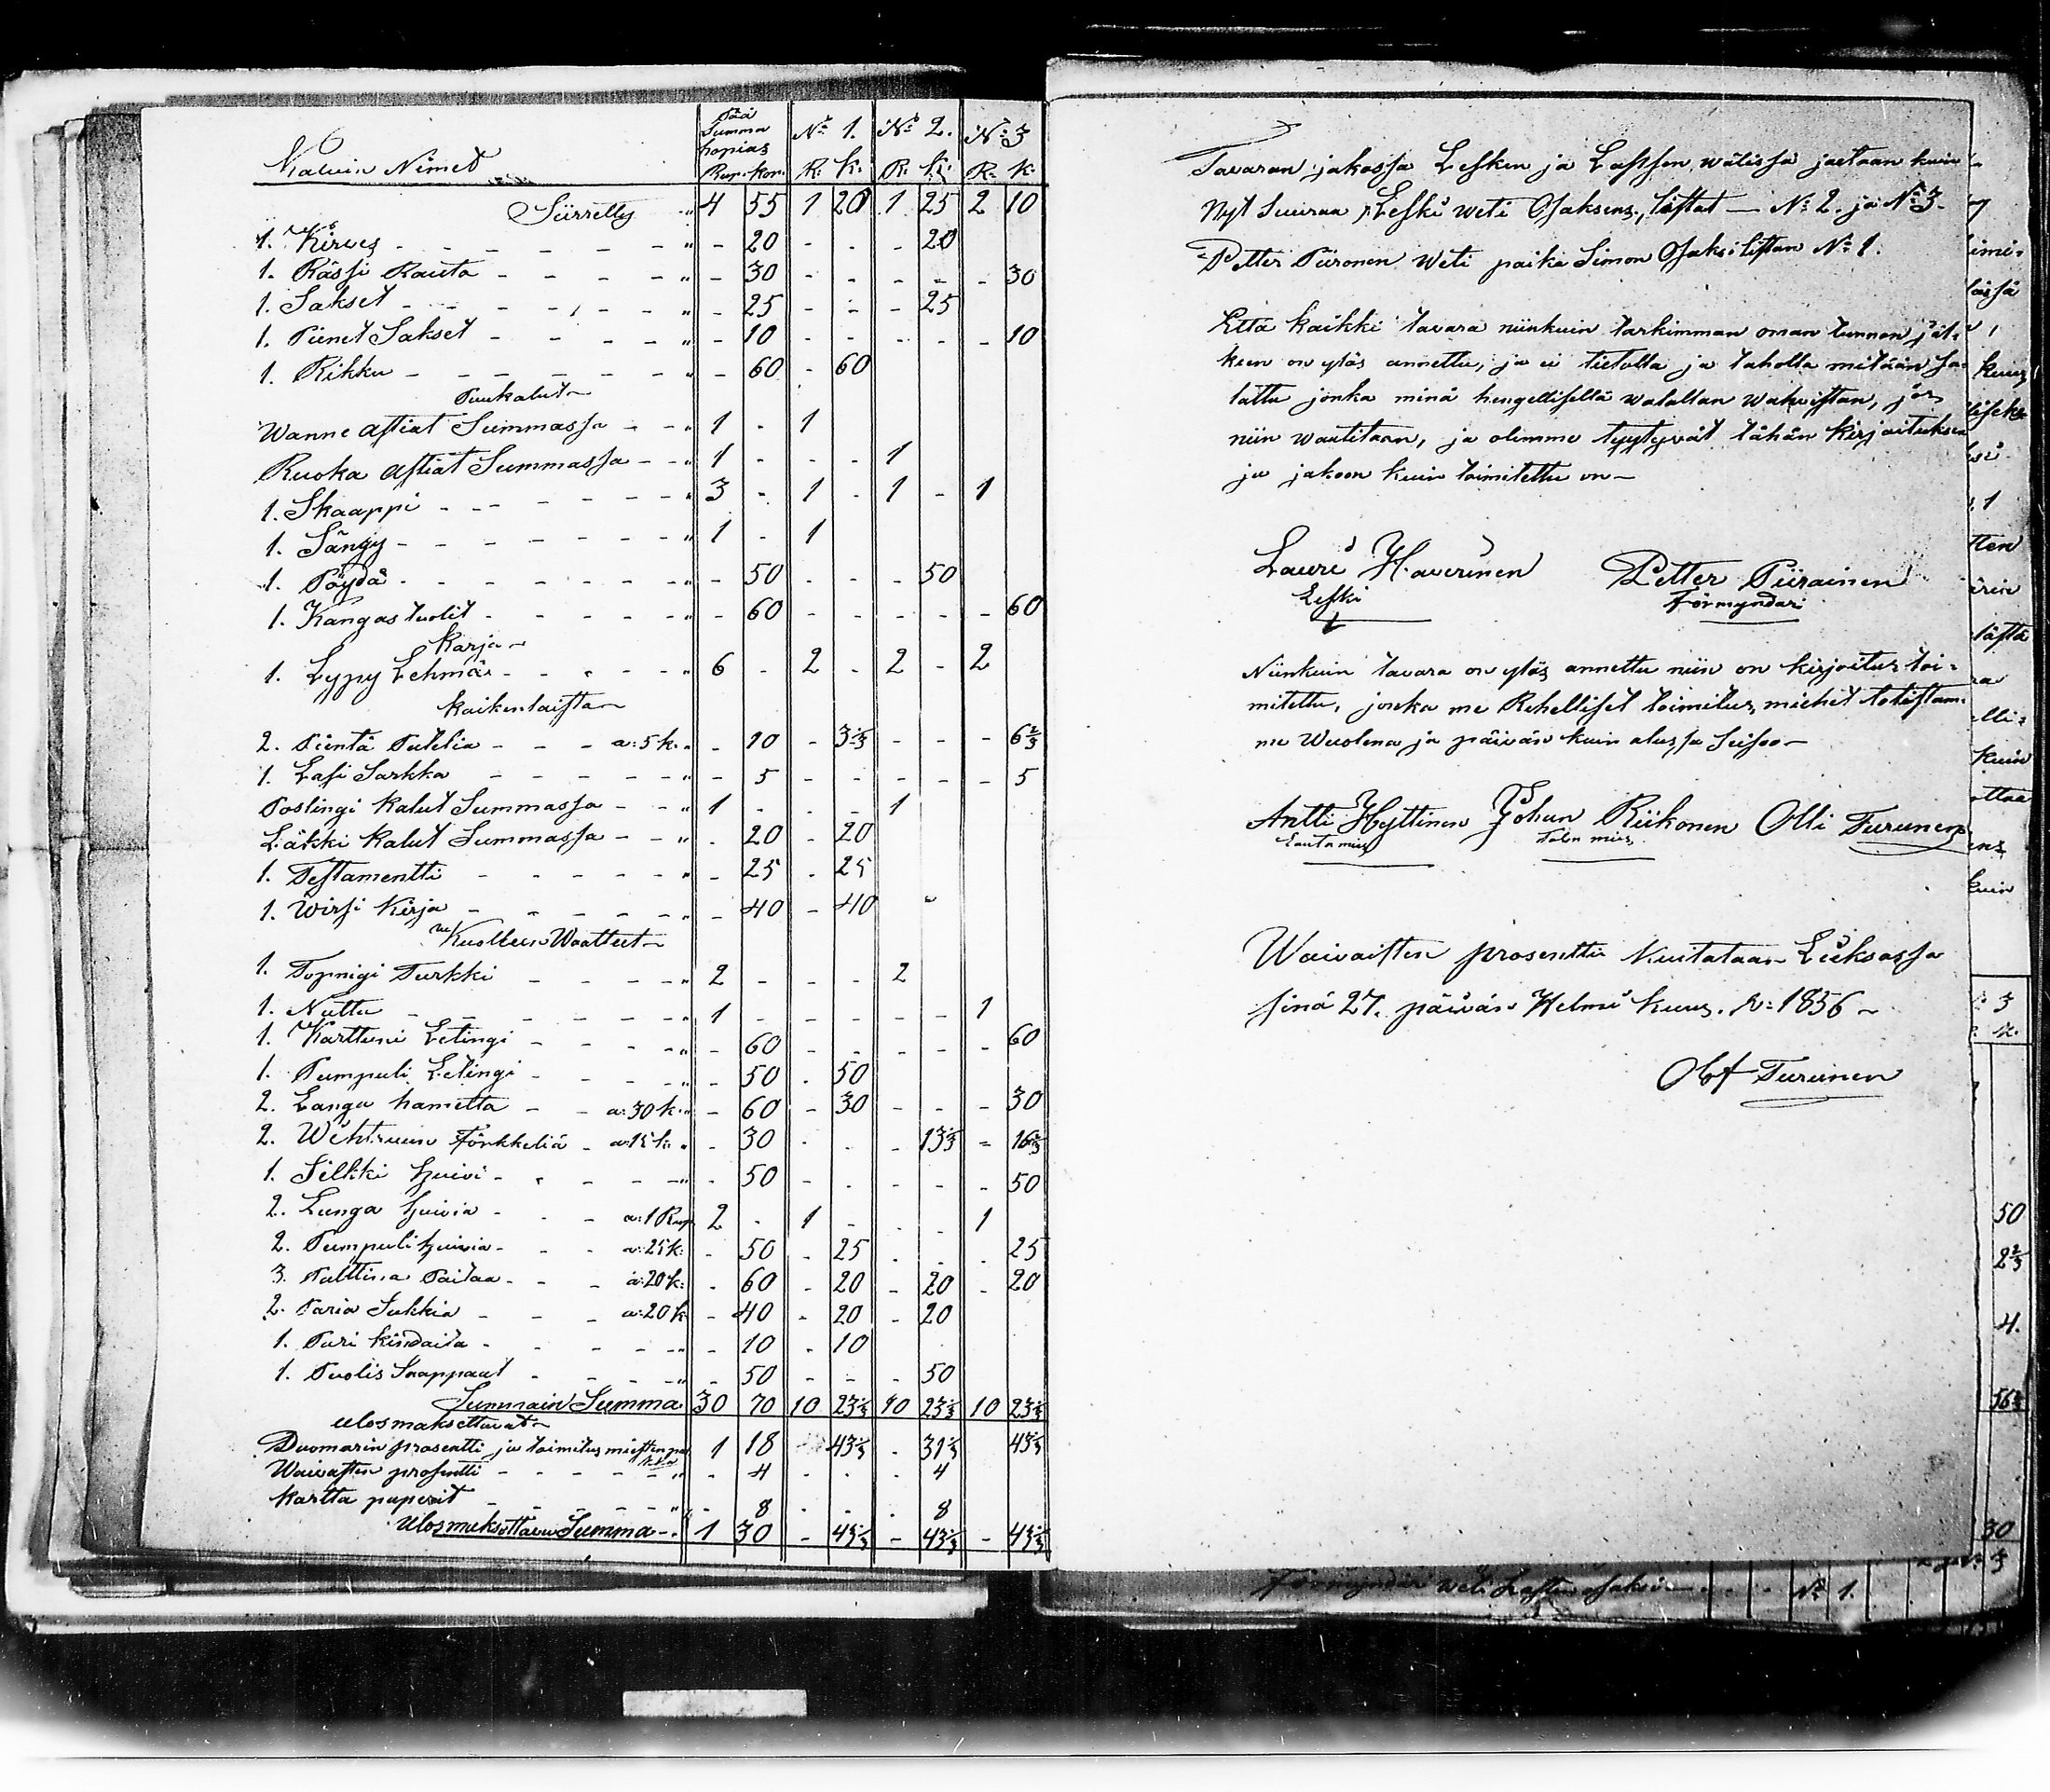 Kaluin Nimet Pää Summa hopias Rup. Kop. N:o 1. R. K. N:o 2. R. K. N:o 3 R. K.
Siirretty 4 55 1 20 1 25 2 10
1. Kirves - 20 - - - 20
1. Rässi Rauta - 30 - - - - - 30
1. Sakset - 25 - - - 25
1. Pienet Sakset - 10 - - - - - 10
1. Rikku - 60 - 60
Puukalut
Wanne astiat Summassa 1 - 1
Ruoka astiat Summassa 1 - - - 1
1. Skaappi 3 - 1 - 1 - 1
1. Sängy 1 - 1
1. Pöydä - 50 - - - 50
1. Kangas tuolit - 60 - - - - - 60
Karja
1. Lypy Lehmä 6 - 2 - 2 - 2
Kaikenlaista
2. Pientä Putelia a: 5 k. - 10 - 3 1/3 - - - 6 2/3
1. Lasi Sarkka - 5 - - - - - 5
Poslingi Kalut Summassa 1 - - - 1
Läkki Kalut Summassa - 20 - 20
1. Testamentti - 25 - 25
1. Wirsi Kirja - 40 - 40
Kuolleen Waatteet
1. Topnigi Turkki 2 - - - 2
1. Nuttu 1 - - - - - 1
1. Karttuni Letingi - 60 - - - - - 60
1. Pumpuli Letingi - 50 - 50
2. Langa hametta a: 30 k. - 60 - 30 - - - 30
2. Wehtruun Förkkeliä a: 15 k. - 30 - - - 13 1/3 - 16 2/3
1. Silkki huivi - 50 - - - - - 50
2. Langa huivia a: 1 Rup. 2 - 1 - - - 1
2. Pumpuli huivia a: 25 k. - 50 - 25 - - - 25
3. Palttina Paitaa a: 20 k. - 60 - 20 - 20 - 20
2. Paria Sukkia a: 20 k - 40 - 20 - 20
1. Pari Kindaita - 10 - 10
1. Puolis Saappaat - 50 - - - 50
Summain Summa 30 70 10 23 1/3 10 23 1/3 10 23 1/3
Ulosmaksettavat
Duomarin prosentti ja toimitus miesten 1 18 43 1/3 - 31 1/3 43 1/3
Waivasten prosentti - 4 - - - 4
Kartta paperit - 8 - - - 8
Ulosmaksettavan Summa 1 30 - 43 1/3 - 43 1/3 - 43 1/3
Tavaran jakossa Lesken ja Lapsen wälissä jaetaan kuin
Nyt Seuraa, Leski weti Osaksens, listat — N:o 2. ja N:o 3.
Petter Piironen Weti poika Simon Osaksi listan N:o 1.
Että kaikki tavara niinkuin tarkimman oman tunnon jäl-
keen on ylös annettu, ja ei tietolla ja taholla mitään sa-
lattu jonka minä hengellisellä walallan wahvistan, jos
niin waatitaan, ja olimme tyytyvät tähän kirjoituksen
ja jakoon kuin toimitettu on
Lauri Haverinen Petter Piirainen
Leski Förmyndari
Niinkuin tavara on ylös annettu niin on kirjoitus toi-
mitettu, jonka me Rehelliset toimitus miehet totistam-
me Wuolena ja päivän kuin alussa Seisoo
Antti Hyttinen Johan Riikonen Olli Turunen
Lautamies Talon mies
Waivaisten prosentti Kuitataan Lieksassa
sinä 27. päivän Helmi kuus. v: 1856
Olof Turunen
Förmyndari weti Lapsen osaksi N:o 1.